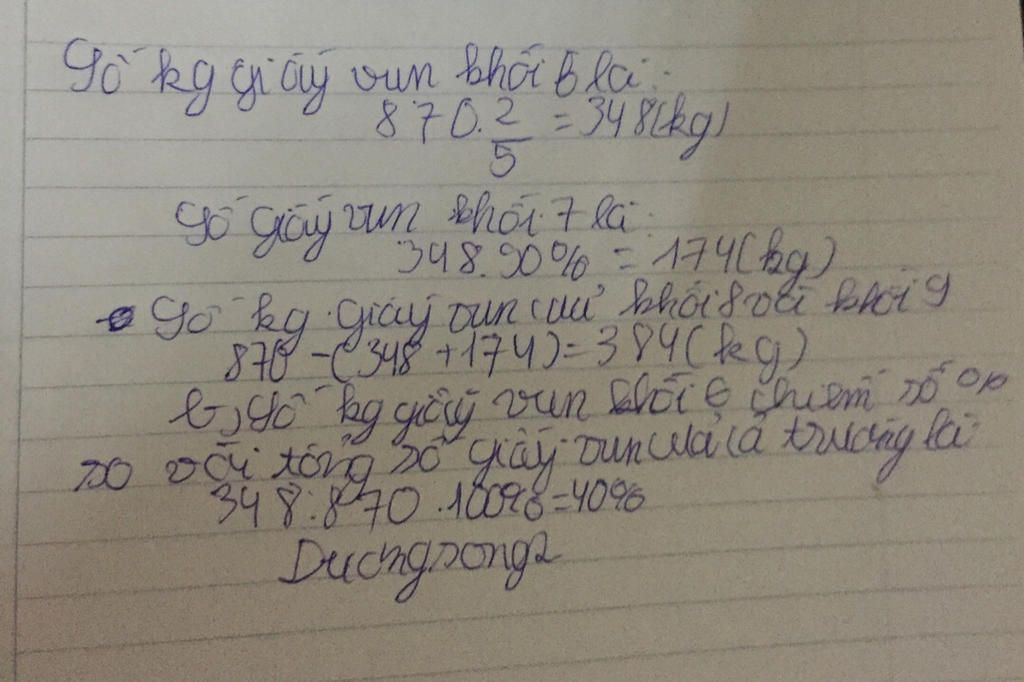 Số kg giấy vụn khối 6 là:
870. 2/5 = 348(kg)
Số giấy vụn khối 7 là:
348.90% = 174(kg)
Số kg giấy vụn của khối 8 với khối 9
870 - (348 + 174) = 384(kg)
b, Số kg giấy vụn khối 6 chiếm số %
so với tổng số giấy vụn của cả trường là:
348:870.100%=40%
Duongsong2